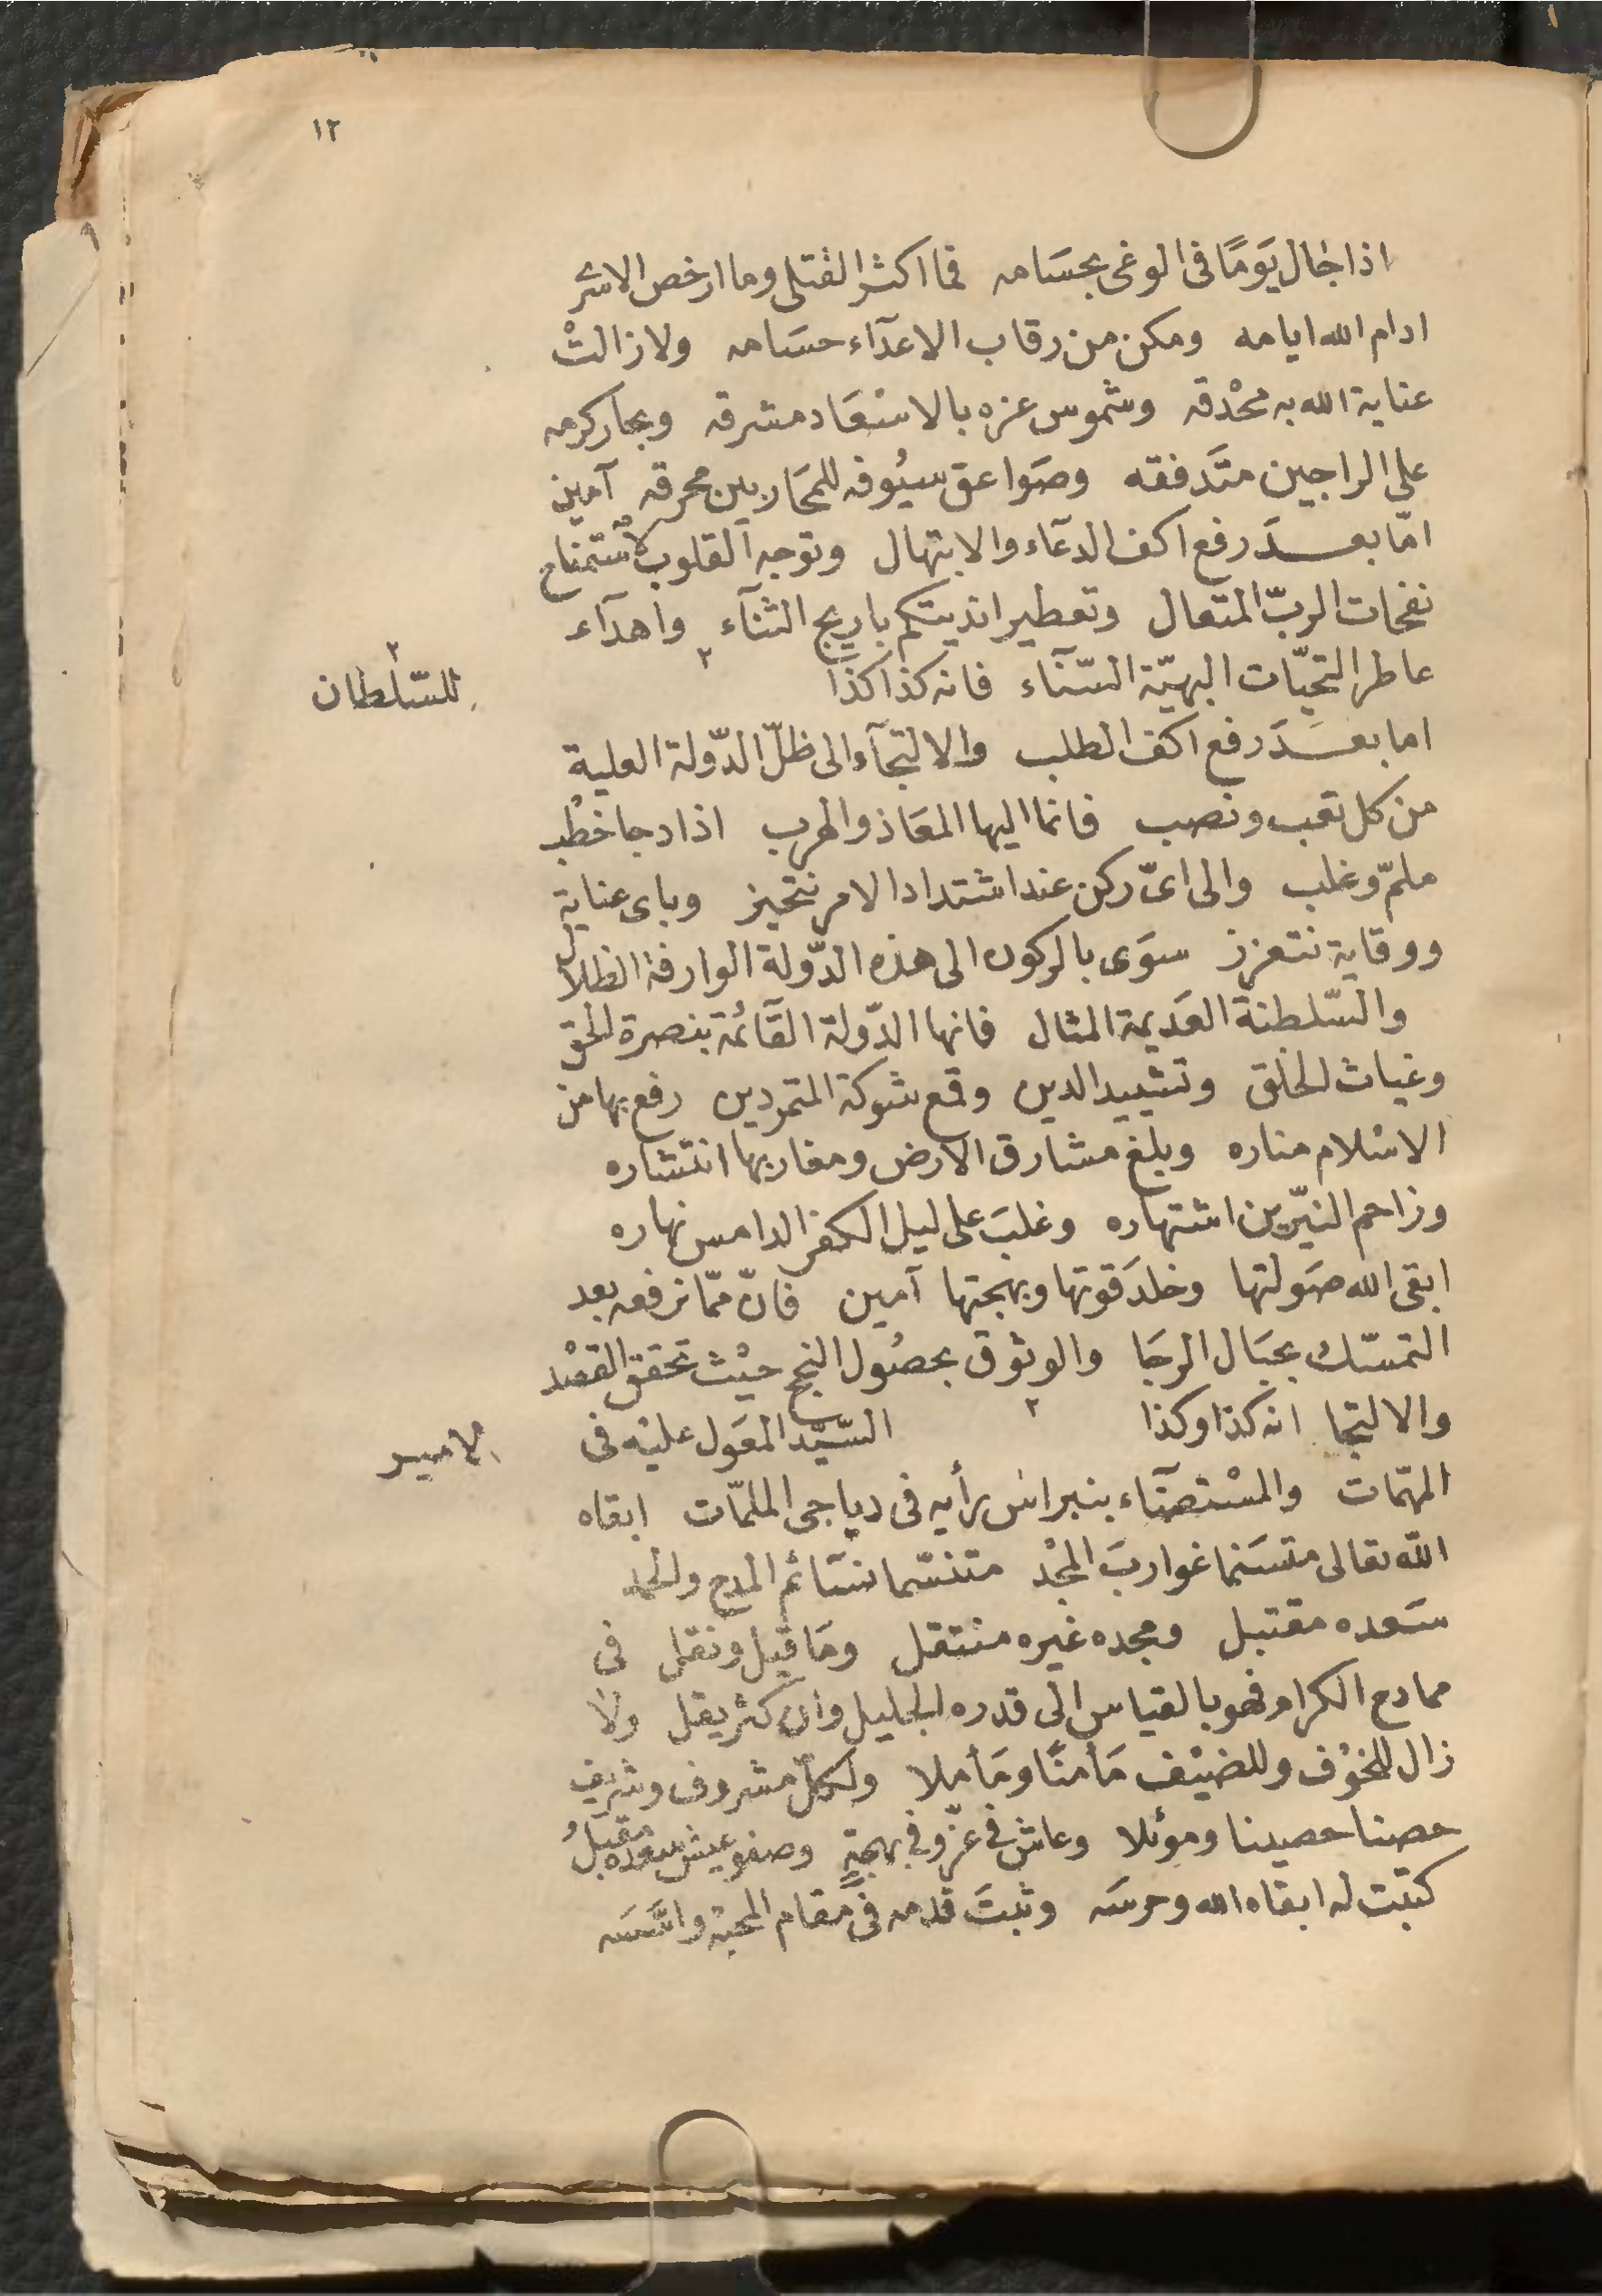 ١٢
اذا جال يَومًا فى الوغى بحسَامه فما اكثر القتلى وما ارخص الاسرى
ادام الله ايامه ومكن من رقاب الاعدآء حسَامه ولا زالتْ
عناية الله به محْدقه وشموس عزه بالاسْعَاد مشرقه وبحار كرمه
على الراجين متَدفقه وصَواعق سيُوفه للمحَاربين محرقه آمين
امّا بعــد رفع اكف الدعَاء والابتهال وتوجه القلوب لاستمناح
نفحات الربّ المتعال وتعطير انديتكم باريج الثنآء واهدآء
عاطر التحيّات البهيّة السّنآء فانه كذا كذا ٢
للسّلطان ٢
اما بعــدَ رفع اكف الطلب والالتجآء الى ظلّ الدّولة العلية
من كل تعب ونصب فانما اليها المعَاذ والهرب اذا دجا خطْب
ملمّ وغلب والى اىّ ركن عند اشتداد الامر نتحيز وباى عناية
ووقاية نتعزز سوَى بالركون الى هذه الدّولة الوارفة الظلال
والسّلطنة العَديمة المثال فانها الدّولة القآئمة بنصرة الحق
وغياث الخلق وتشييد الدين وقمع شوكة المتمردين رفع بها من
الاسْلام مناره وبلغ مشارق الارض ومغاربها انتشاره
وزاحم النيّرين اشتهاره وغلبَ على ليل الكفر الدامس نهاره
ابقى الله صَولتها وخلدَ قوتها وبهجتها آمين فانّ ممّا نرفعه بعد
التمسّك بحبَال الرجَا والوثوق بحصُول النجح حيْث تحقق القصْد
والالتجا انه كذا وكذا ٢ السّيّد المعَول عليْه فى
الامير
المهمّات والمسْتضآء بنبراس رأيه فى دياجى الملمّات ابقاه
الله تعالى متسَنما غواربَ المجْد متنسّما نسَآئم المدح والحمد
سَعده مقتبل ومجده غيره منتقل ومَا قيل ونقل فى
ممادح الكرام فهو بالقياس الى قدره الجليل وان كثر يقل ولا
زال للخوْف وللضيْف مَأمنًا ومَأملا ولكل مشروف وشريف
حصنا حصينا وموئلا وعاش فى عزّ وفى بهجةٍ وصفو عيش سعده مقبلُ
كتبْت له ابقاه الله وحرسَه وثبتَ قدمه فى مقام المحبة واسَّسَه